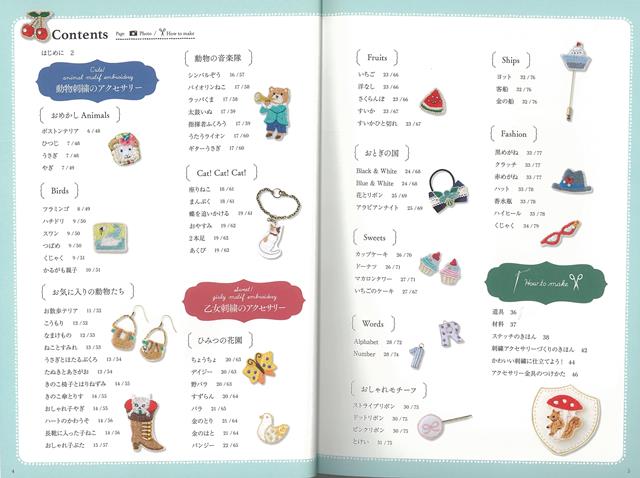 Contents
Page Photo / How to make
はじめに 2
Cute!
animal motif embroidery
動物刺繍のアクセサリー
おめかし Animals
ボストンテリア 6 / 48
ひつじ 7 / 48
うさぎ 7 / 48
やぎ 7 / 49
Birds
フラミンゴ 8 / 49
ハチドリ 9 / 50
スワン 9 / 50
つばめ 9 / 50
くじゃく 9 / 51
かるがも親子 10 / 51
お気に入りの動物たち
お散歩テリア 11 / 52
こうもり 12 / 52
なまけもの 12 / 53
ねことすみれ 13 / 53
うさぎとほたるぶくろ 13 / 54
たぬきとあさがお 13 / 54
きのこ椅子とはりねずみ 14 / 55
きのこ傘とりす 14 / 55
おしゃれ子やぎ 14 / 55
ハートのかわうそ 14 / 56
長靴に入った子ねこ 14 / 56
おしゃれ子ぶた 15 / 57
動物の音楽隊
シンバルぞう 16 / 57
バイオリンねこ 17 / 58
ラッパくま 17 / 58
太鼓いぬ 17 / 59
指揮者ふくろう 17 / 59
うたうライオン 17 / 60
ギターうさぎ 17 / 60
Cat! Cat! Cat!
座りねこ 18 / 61
まんぷく 18 / 61
蝶を追いかける 19 / 61
おやすみ 19 / 62
2本足 19 / 62
あくび 19 / 62
Sweet!
girly motif embroidery
乙女刺繍のアクセサリー
ひみつの花園
ちょうちょ 20 / 63
デイジー 20 / 63
野バラ 20 / 63
すずらん 20 / 64
バラ 21 / 65
金のとり 21 / 64
金のはと 21 / 64
パンジー 22 / 65
4
Fruits
いちご 23 / 66
洋なし 23 / 66
さくらんぼ 23 / 66
すいか 23 / 66
すいかひと切れ 23 / 67
おとぎの国
Black & White 24 / 68
Blue & White 24 / 68
花とリボン 25 / 69
アラビアンナイト 25 / 69
Sweets
カップケーキ 26 / 70
ドーナツ 26 / 71
マカロンタワー 27 / 71
いちごのケーキ 27 / 67
Words
Alphabet 28 / 72
Number 28 / 74
おしゃれモチーフ
ストライプリボン 30 / 75
ドットリボン 30 / 75
ピンクリボン 30 / 75
とけい 31 / 75
Ships
ヨット 32 / 76
客船 32 / 76
金の船 32 / 76
Fashion
黒めがね 33 / 77
クラッチ 33 / 77
赤めがね 33 / 77
ハット 33 / 78
香水瓶 33 / 78
ハイヒール 33 / 78
くじゃく 34 / 79
How to make
道具 36
材料 37
ステッチのきほん 38
刺繍アクセサリーづくりのきほん 42
かわいい刺繍に仕立てよう! 44
アクセサリー金具のつけかた 46
5